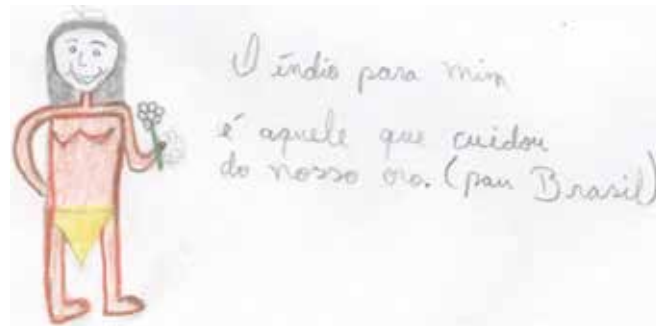 O índio para mim
é aquele que cuidou
do nosso oro. (pau Brasil)